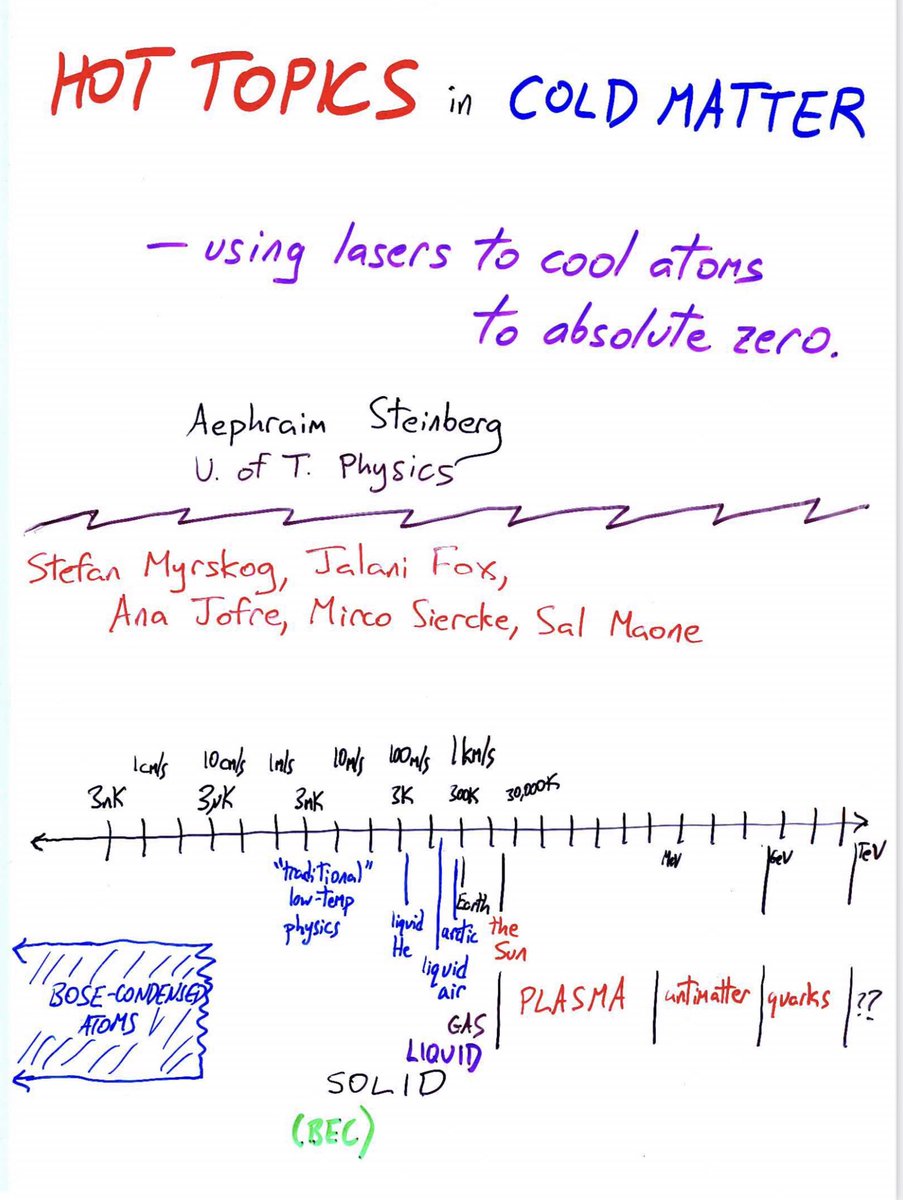 HOT TOPICS in COLD MATTER
– using lasers to cool atoms
to absolute zero.
Aephraim Steinberg
U. of T. Physics
Stefan Myrskog, Jalani Fox,
Ana Jofre, Mirco Siercke, Sal Maone
1cm/s 10cm/s 1m/s 10m/s 100m/s 1km/s
3nK 3µK 3mK 3K 300K 30,000K
MeV GeV TeV
"traditional"
low-temp
physics
liquid
He
liquid
air
arctic
Earth
the
Sun
BOSE-CONDENSED
ATOMS
PLASMA antimatter quarks ??
GAS
LIQUID
SOLID
(BEC)